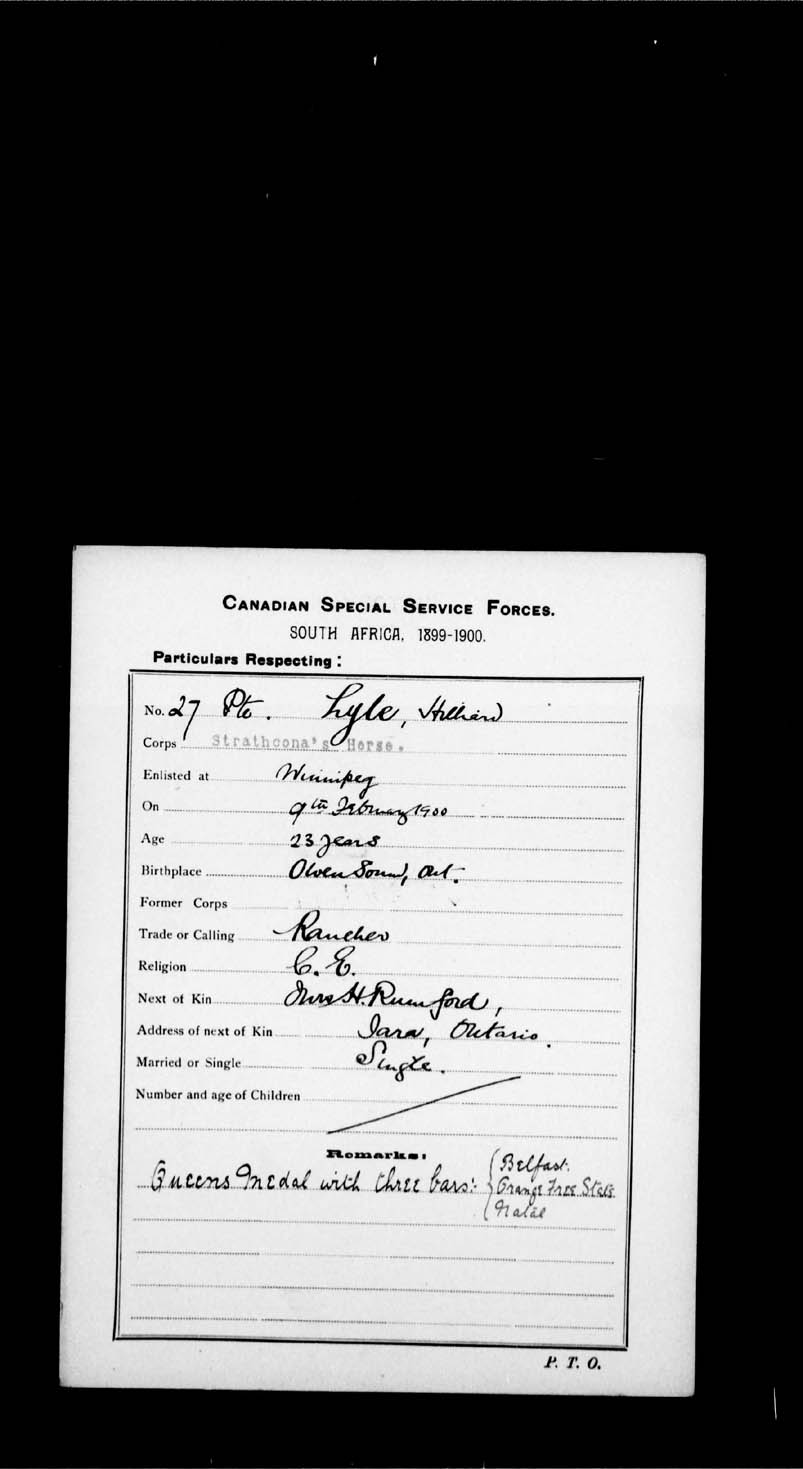 CANADIAN SPECIAL SERVICE FORCES.
SOUTH AFRICA, 1899-1900.
Particulars Respecting:
No. 27 Pte. Lyle, Hilliard
Corps Strathcona's Horse.
Enlisted at Winnipeg
On 9th February 1900
Age 23 years
Birthplace Owen Sound, Ont.
Former Corps
Trade or Calling Rancher
Religion C. E.
Next of Kin Mrs H. Rumford,
Address of next of Kin Tara, Ontario.
Married or Single Single.
Number and age of Children
Remarks:
Queens Medal with three bars:- { Belfast.
Orange Free State
Natal
P. T. O.